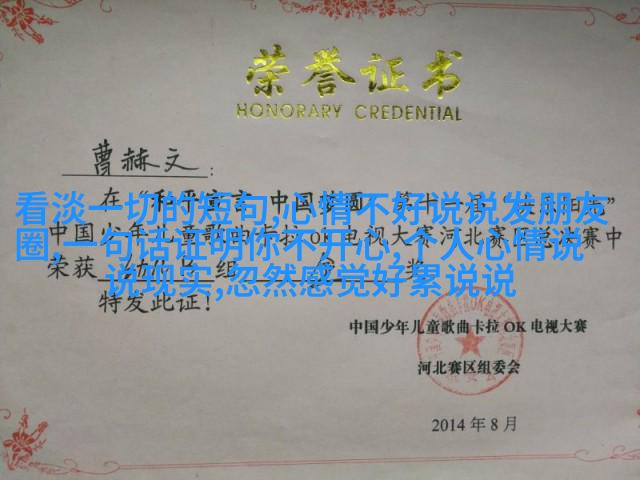 荣誉证书
HONORARY CREDENTIAL
曹赫文:
看淡一切的短句,心情不好说说发朋友
圈,一句话证明你不开心,个人心情说
说现实,忽然感觉好累说说
在
中国少年儿童歌曲卡拉OK电视大赛河北赛区总决赛中
荣获 组 奖
特发此证!
中国少年儿童歌曲卡拉OK电视大赛
河北赛区组委会
2014年8月